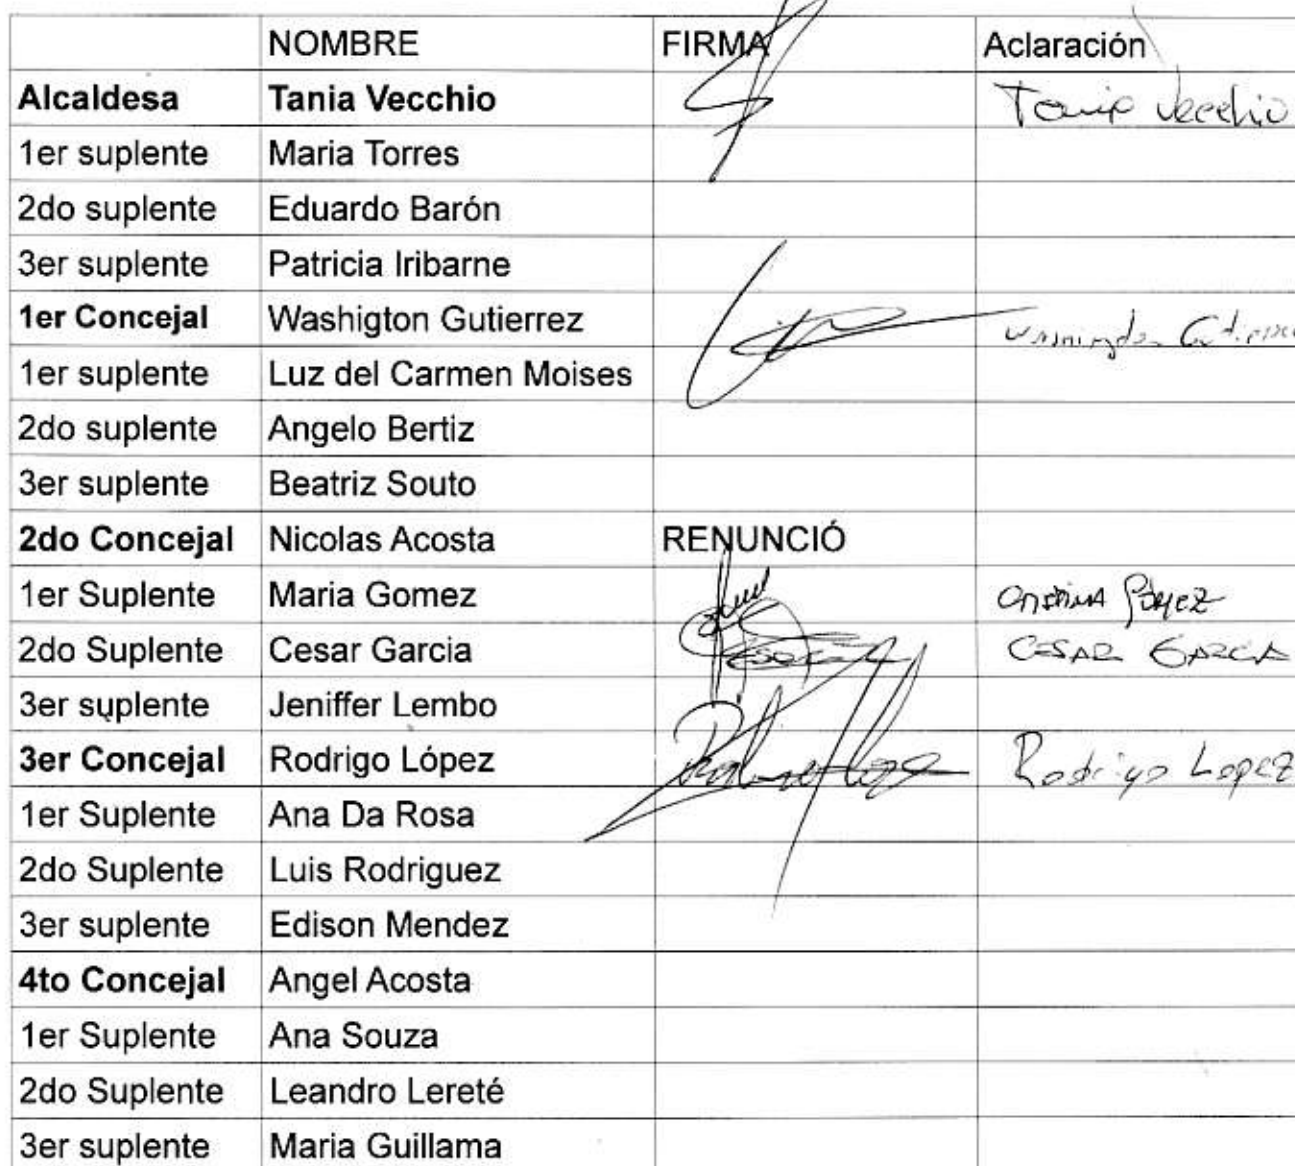 NOMBRE FIRMA Aclaración
Alcaldesa Tania Vecchio Tania Vecchio
1er suplente Maria Torres
2do suplente Eduardo Barón
3er suplente Patricia Iribarne
1er Concejal Washigton Gutierrez
1er suplente Luz del Carmen Moises
2do suplente Angelo Bertiz
3er suplente Beatriz Souto
2do Concejal Nicolas Acosta RENUNCIÓ
1er Suplente Maria Gomez
2do Suplente Cesar Garcia CESAR GARCIA
3er suplente Jeniffer Lembo
3er Concejal Rodrigo López Rodrigo Lopez
1er Suplente Ana Da Rosa
2do Suplente Luis Rodriguez
3er suplente Edison Mendez
4to Concejal Angel Acosta
1er Suplente Ana Souza
2do Suplente Leandro Lereté
3er suplente Maria Guillama